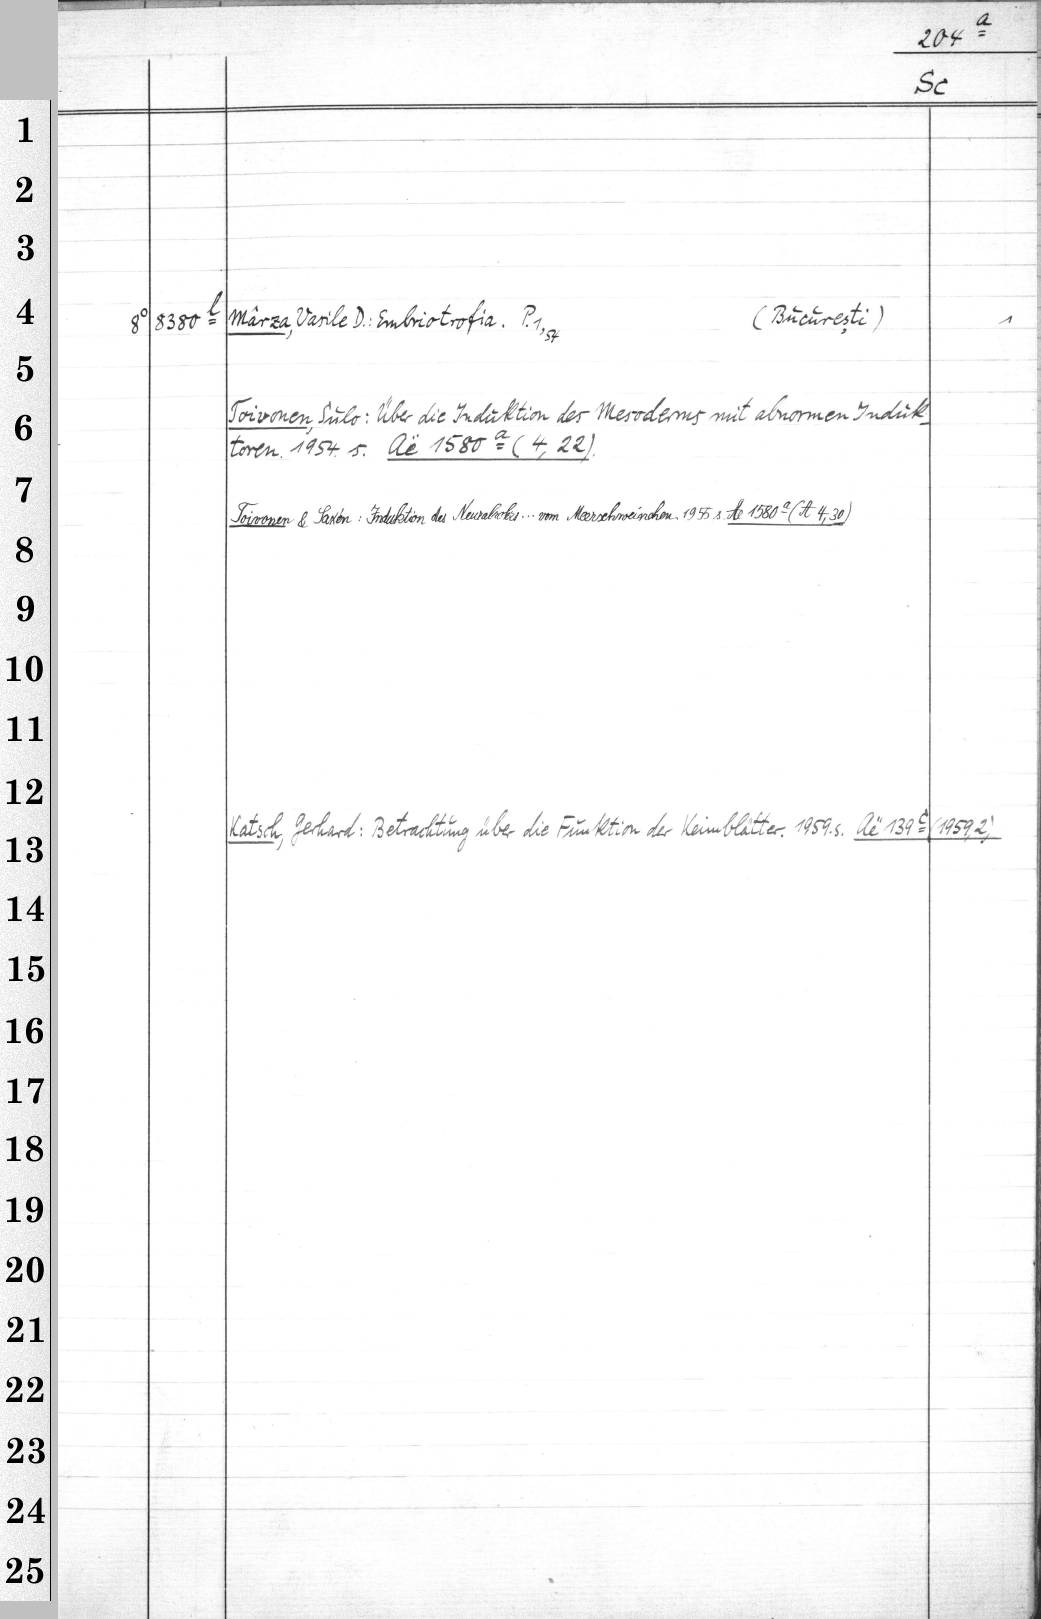 204 a
Sc
1
2
3
4
8° 8380 l Mârza, Vasile D.: Embriotrofia. P. 1, 54 (București) 1
5
6
Toivonen, Sulo: Über die Induktion des Mesoderms mit abnormen Induk-
toren. 1954 s. Aë 1580 a (4, 22).
7
Toivonen & Saxén: Induktion des Neuralrohrs... vom Meerschweinchen. 1955 s. Ae 1580 a (A 4, 30)
8
9
10
11
12
Katsch, Gerhard: Betrachtung über die Funktion der Keimblätter. 1959. s. Aë 139 c (1959, 2)
13
14
15
16
17
18
19
20
21
22
23
24
25